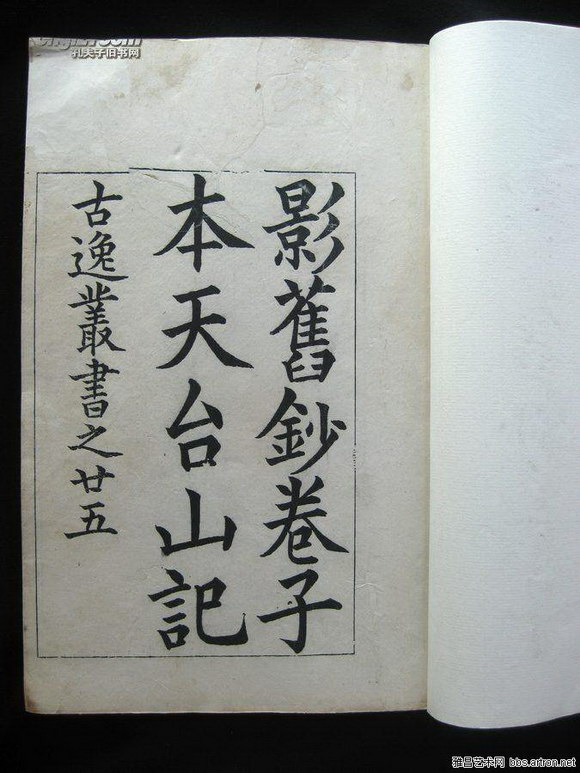 影舊鈔卷子
本天台山記
古逸叢書之廿五
孔夫子旧书网
雅昌艺术网 bbs.artron.net